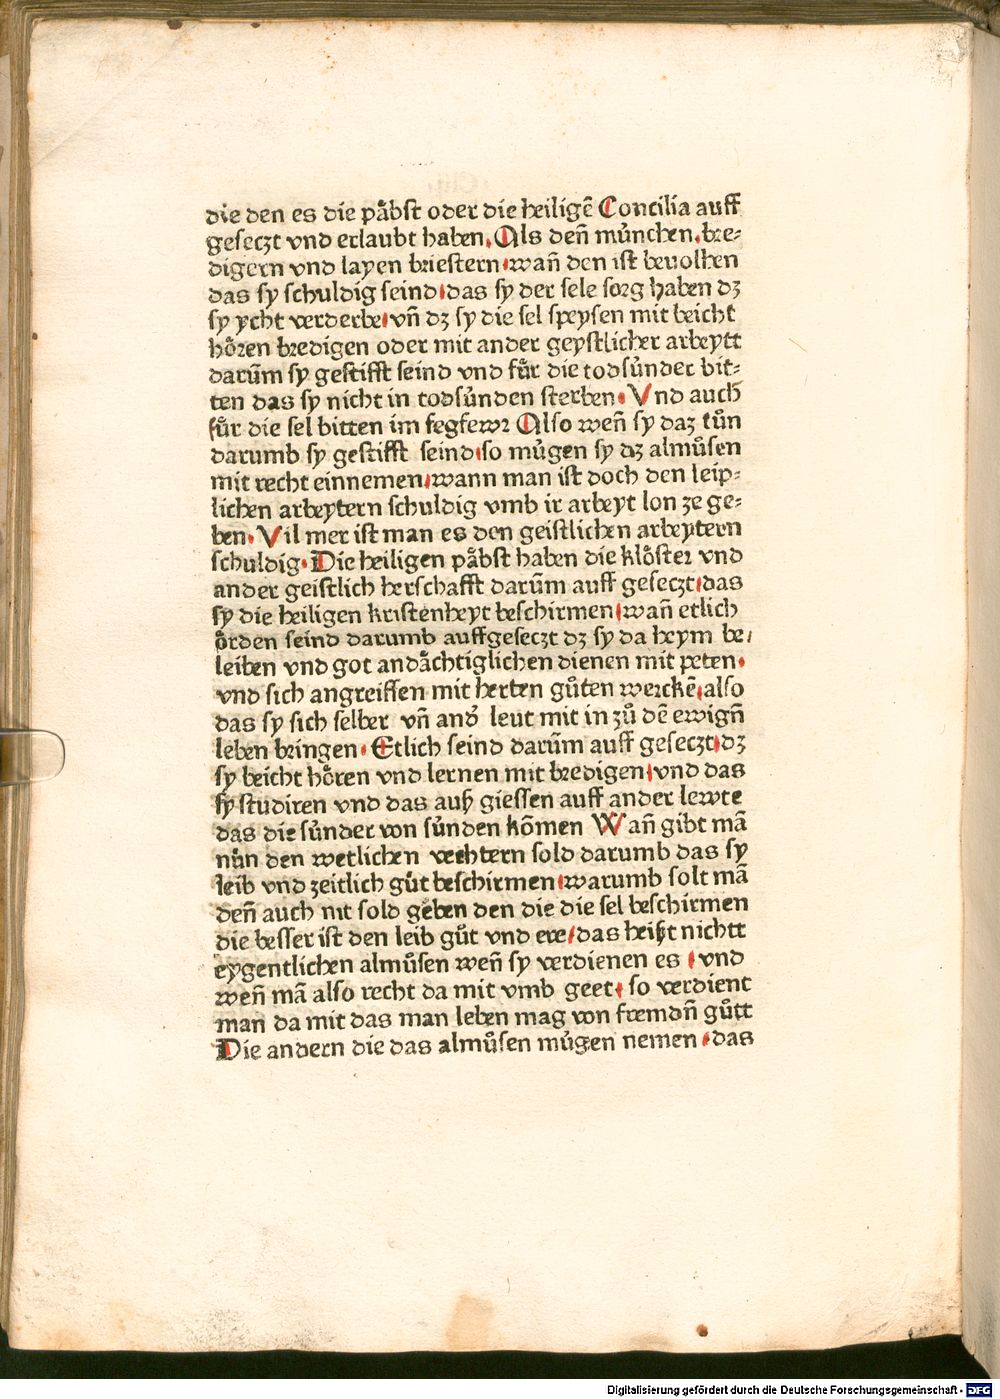 die den es die påbst oder die heiligē Concilia auff
geseczt vnd erlaubt haben. Als den̄ mu̇nchen. bre⸗
digern vnd layen briestern wan̄ den ist beuolhen
das sy schuldig seind das sy der sele sorg haben dʒ
sy ycht verderbe vn̄ dʒ sy die sel speysen mit beicht
hȯren bredigen oder mit ander geystlicher arbeytt
darūm sy gestifft seind vnd fu̇r die todsu̇nder bit⸗
ten das sy nicht in todsu̇nden sterben. Vnd auch
fu̇r die sel bitten im fegfewr Also wen̄ sy daz tůn
darumb sy gestifft seind so mu̇gen sy dʒ almůsen
mit recht einnemen wann man ist doch den leip⸗
lichen arbeytern schuldig vmb ir arbeyt lon ze ge⸗
ben. Vil mer ist man es den geistlichen arbeytern
schuldig. Die heiligen påbst haben die klȯster vnd
ander geistlich herschafft darūm auff geseczt das
sy die heiligen kristenheyt beschirmen wan̄ etlich
ȯrden seind darumb auffgeseczt dʒ sy da heym be⸗
leiben vnd got andåchtiglichen dienen mit peten.
vnd sich angreiffen mit herten gůten werckē also
das sy sich selber vn̄ and̕ leut mit in zů dē ewign̄
leben bringen. Etlich seind darūm auff geseczt dʒ
sy beicht hȯren vnd lernen mit bredigen vnd das
sy studiren vnd das auß giessen auff ander lewte
das die su̇nder von su̇nden kōmen Wan̄ gibt mā
nůn den wetlichen vechtern sold darumb das sy
leib vnd zeitlich gůt beschirmen warumb solt mā
den̄ auch nit sold geben den die die sel beschirmen
die besser ist den leib gůt vnd ere das heißt nichtt
eygentlichen almůsen wen̄ sy verdienen es vnd
wen̄ mā also recht da mit vmb geet so verdient
man da mit das man leben mag von fremdn̄ gůtt
Die andern die das almůsen mu̇gen nemen das
Digitalisierung gefördert durch die Deutsche Forschungsgemeinschaft - DFG